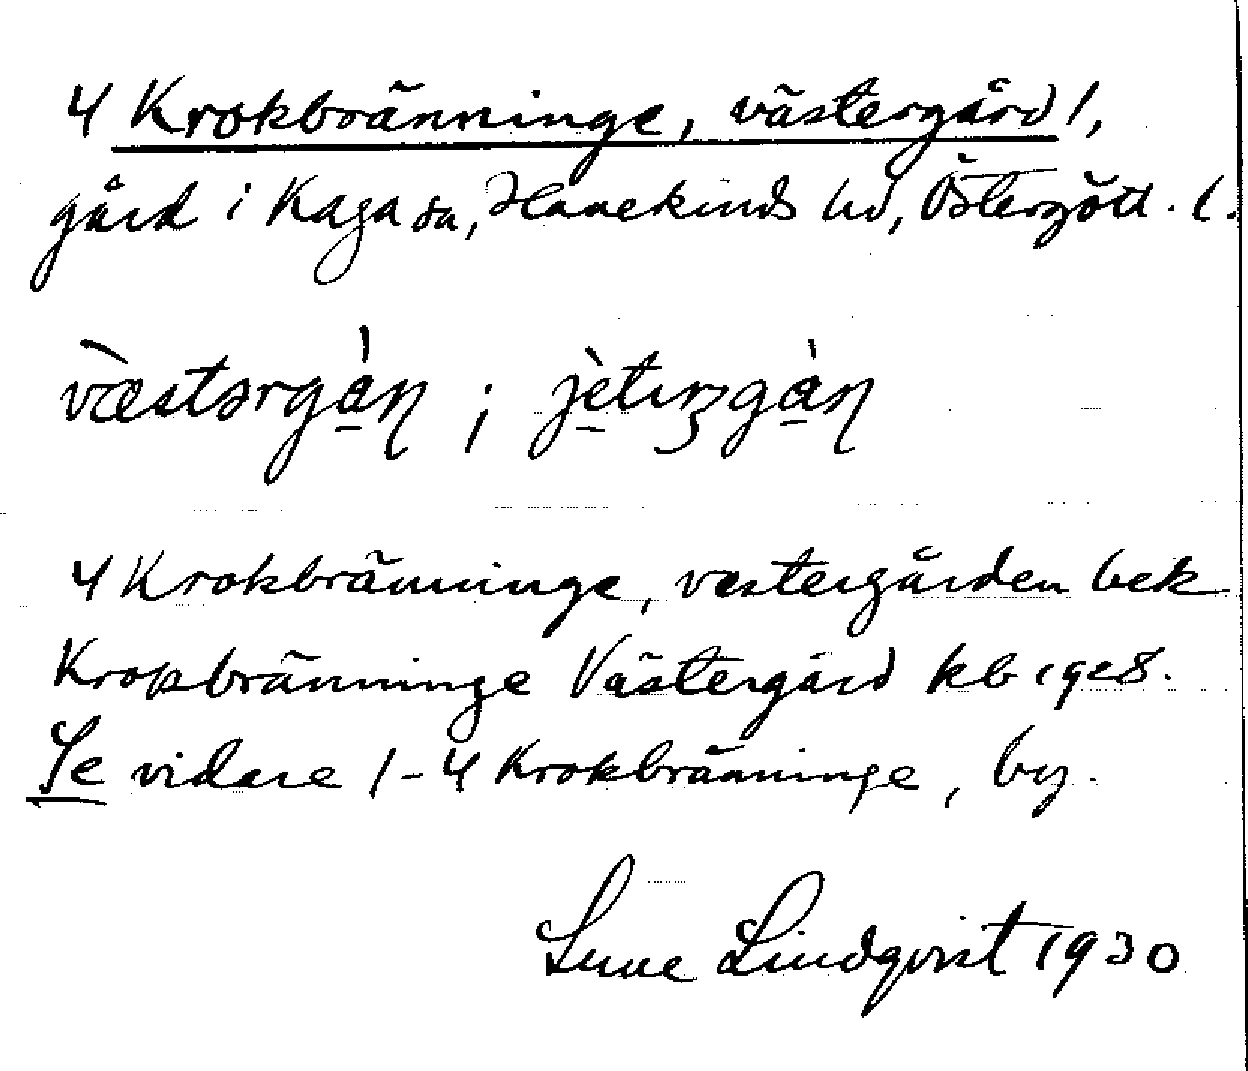 4 Krokbränninge, västergård /,
gård i Kaga sn, Hanekinds hd, Östergötl. l.
væstərgån ; jètər gån
4 Krokbränninge, västergården bek
Krokbränninge Västergård kb 1928.
Se vidare 1-4 Krokbränninge, by.
Sune Lindqvist 1930